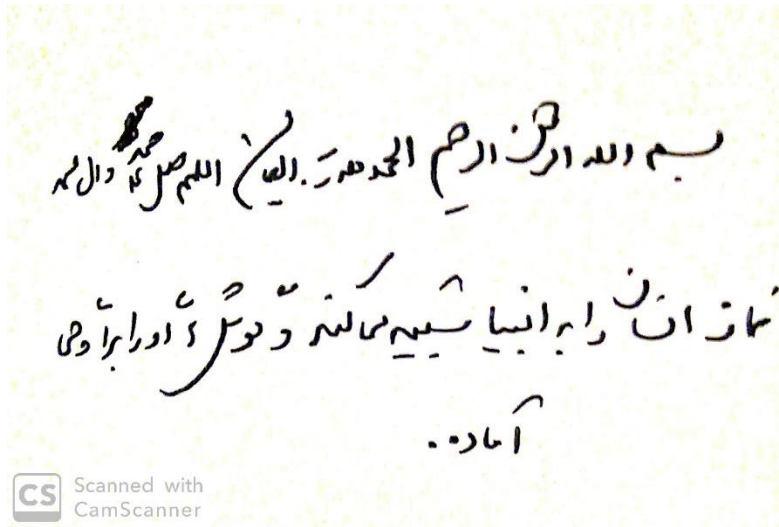 بسم الله الرحمن الرحیم الحمدلله رب العالمین اللهم صل علی محمد و ال محمد
نماز انسان را به انبیا شبیه می کند و او را برا وحی
آماده..
CS Scanned with
CamScanner